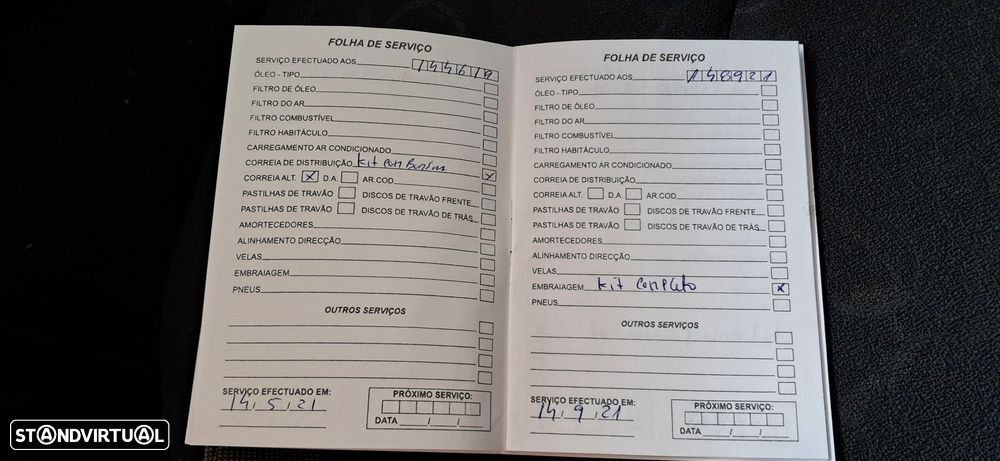 FOLHA DE SERVIÇO
SERVIÇO EFECTUADO AOS 144619
ÓLEO - TIPO
FILTRO DE ÓLEO
FILTRO DO AR
FILTRO COMBUSTÍVEL
FILTRO HABITÁCULO
CARREGAMENTO AR CONDICIONADO
CORREIA DE DISTRIBUIÇÃO kit com Bomba X
CORREIA ALT. X D.A. AR.COD
PASTILHAS DE TRAVÃO DISCOS DE TRAVÃO FRENTE
PASTILHAS DE TRAVÃO DISCOS DE TRAVÃO DE TRÁS
AMORTECEDORES
ALINHAMENTO DIRECÇÃO
VELAS
EMBRAIAGEM
PNEUS
OUTROS SERVIÇOS
SERVIÇO EFECTUADO EM:
14, 5, 21
PRÓXIMO SERVIÇO:
DATA / /
FOLHA DE SERVIÇO
SERVIÇO EFECTUADO AOS 148921
ÓLEO - TIPO
FILTRO DE ÓLEO
FILTRO DO AR
FILTRO COMBUSTÍVEL
FILTRO HABITÁCULO
CARREGAMENTO AR CONDICIONADO
CORREIA DE DISTRIBUIÇÃO
CORREIA ALT. D.A. AR.COD
PASTILHAS DE TRAVÃO DISCOS DE TRAVÃO FRENTE
PASTILHAS DE TRAVÃO DISCOS DE TRAVÃO DE TRÁS
AMORTECEDORES
ALINHAMENTO DIRECÇÃO
VELAS
EMBRAIAGEM kit completo X
PNEUS
OUTROS SERVIÇOS
SERVIÇO EFECTUADO EM:
14, 9, 21
PRÓXIMO SERVIÇO:
DATA / /
STANDVIRTUAL